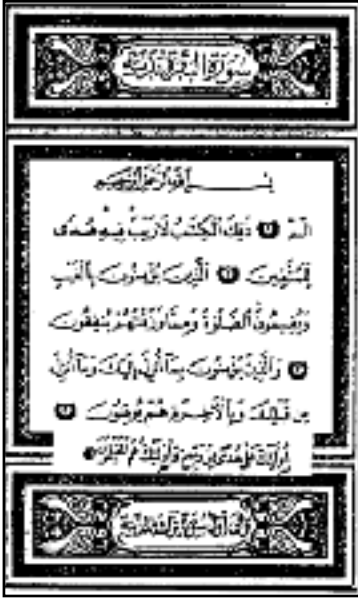 سورة البقرة مدنية
بسم الله الرحمن الرحيم
الم ۝ ذلك الكتب لا ريب فيه هدى
للمتقين ۝ الذين يؤمنون بالغيب
ويقيمون الصلوة ومما رزقنهم ينفقون
۝ والذين يؤمنون بما أنزل إليك وما أنزل
من قبلك وبالآخرة هم يوقنون ۝
أولئك على هدى من ربهم وأولئك هم المفلحون ۝